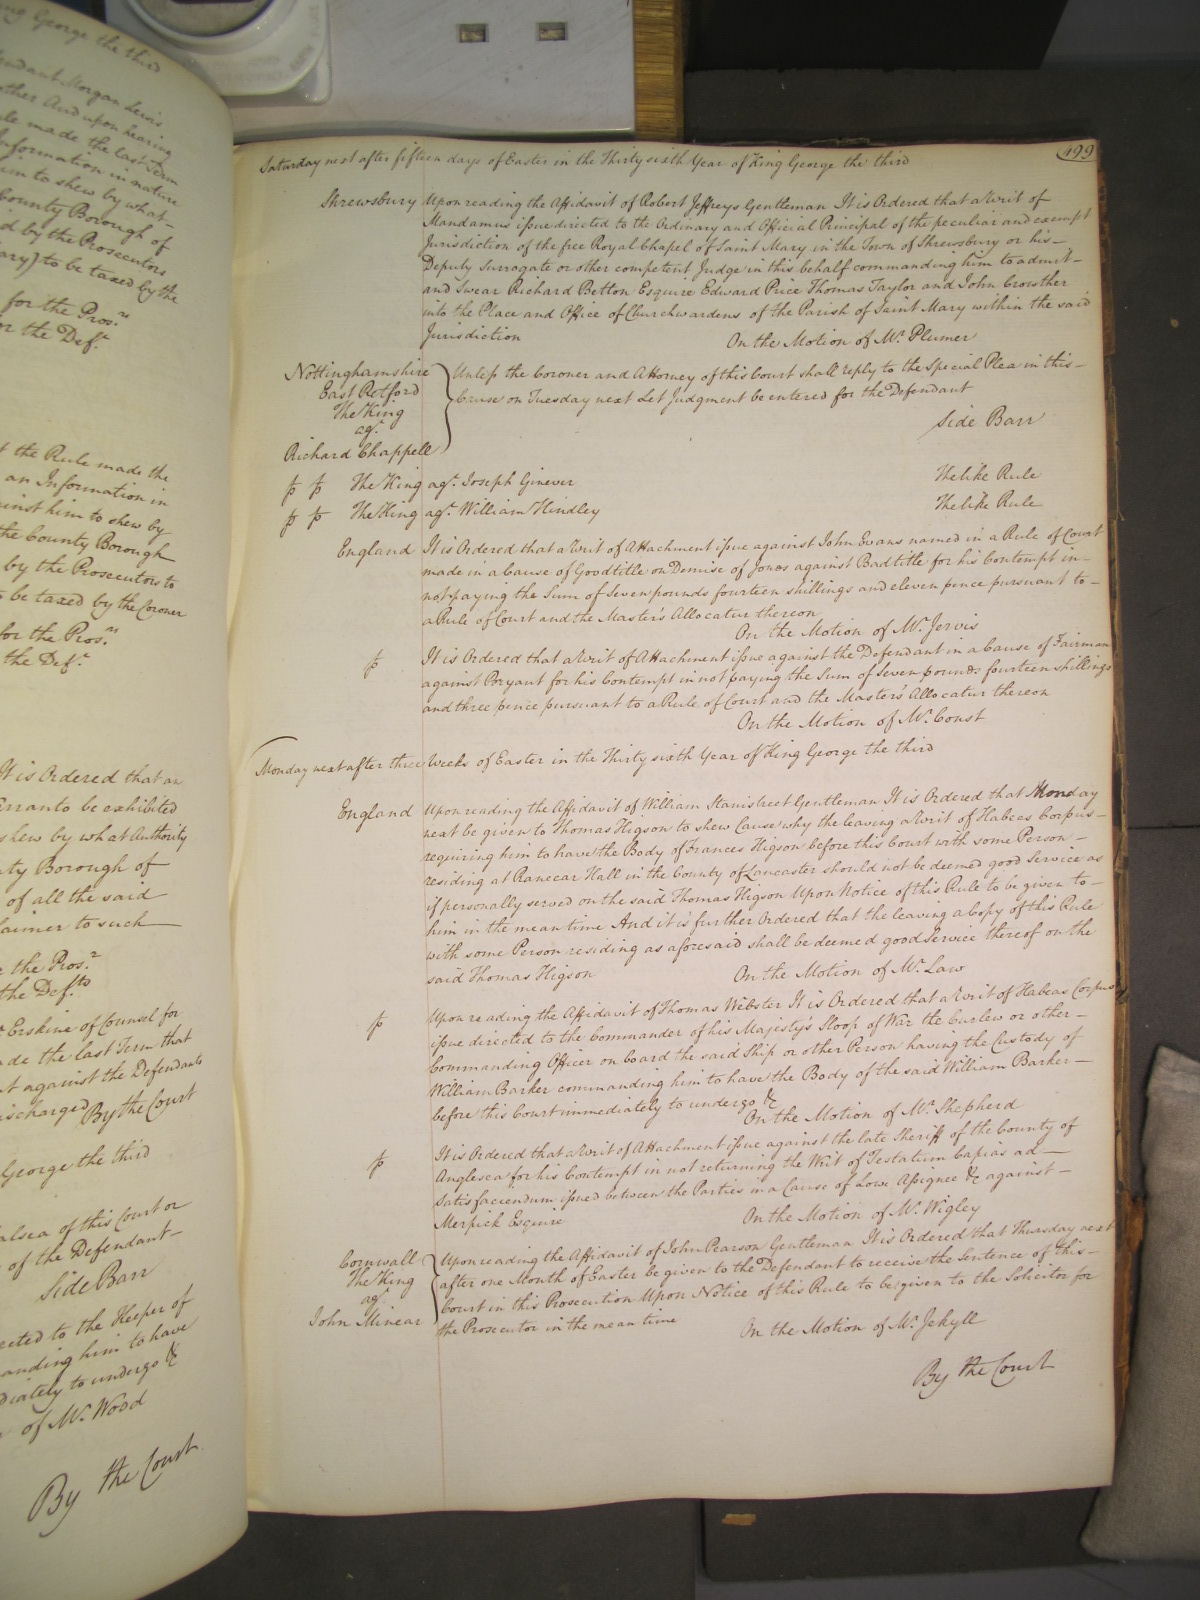 ing George the third
endant Morgan Lewis
ather And upon hearing
ule made the last Term
Information in nature
him to shew by what
County Borough of
d by the Prosecutors
ary) to be taxed by the
for the Pros.rs
or the Def.t
f the Rule made the
an Information in
ainst him to shew by
the County Borough
by the Prosecutors to
o be taxed by the Coroner
for the Pros.rs
the Def.t
It is Ordered that an
Warranto be exhibited
shew by what Authority
nty Borough of
of all the said
laimer to such
the Pros.r
the Def.ts
Mr Erskine of Counsel for
ade the last Term that
t against the Defendants
ischarged By the Court
George the third
alsea of this Court or
of the Defendant
Side Barr
ected to the Keeper of
anding him to have
diately to undergo &c
of Mr. Wood
By the Court
199
Saturday next after fifteen days of Easter in the Thirty sixth Year of King George the third
Shrewsbury Upon reading the Affidavit of Robert Jeffreys Gentleman It is Ordered that a Writ of
Mandamus issue directed to the Ordinary and Official Principal of the peculiar and exempt
Jurisdiction of the free Royal Chapel of Saint Mary in the Town of Shrewsbury or his
Deputy Surrogate or other competent Judge in this behalf commanding him to admit
and Swear Richard Betton Esquire Edward Price Thomas Taylor and John Crowther
into the Place and Office of Churchwardens of the Parish of Saint Mary within the said
Jurisdiction On the Motion of Mr. Plumer
Nottinghamshire Unless the Coroner and Attorney of this Court shall reply to the Special Plea in this
East Retford Cause on Tuesday next Let Judgment be entered for the Defendant
The King
agt. Side Barr
Richard Chappell
The King agt. Joseph Ginever The like Rule
The King agt. William Hindley The like Rule
England It is Ordered that a Writ of Attachment issue against John Evans named in a Rule of Court
made in a Cause of Goodtitle on Demise of Jones against Badtitle for his Contempt in
not paying the Sum of Seven pounds fourteen shillings and eleven pence pursuant to
a Rule of Court and the Master's Allocatur thereon
On the Motion of Mr. Jervis
It is Ordered that a Writ of Attachment issue against the Defendant in a Cause of Fairman
against Bryant for his Contempt in not paying the Sum of Seven pounds fourteen shillings
and three pence pursuant to a Rule of Court and the Master's Allocatur thereon
On the Motion of Mr. Const
Monday next after three Weeks of Easter in the Thirty sixth Year of King George the third
England Upon reading the Affidavit of William Stanistreet Gentleman It is Ordered that Monday
next be given to Thomas Higson to shew Cause why the leaving a Writ of Habeas Corpus
requiring him to have the Body of Frances Higson before this Court with some Person
residing at Ranecar Hall in the County of Lancaster should not be deemed good Service as
if personally served on the said Thomas Higson Upon Notice of this Rule to be given to
him in the mean time And it is further Ordered that the leaving a Copy of this Rule
with some Person residing as aforesaid shall be deemed good Service thereof on the
said Thomas Higson On the Motion of Mr. Law
Upon reading the Affidavit of Thomas Webster It is Ordered that a Writ of Habeas Corpus
issue directed to the Commander of his Majesty's Sloop of War the Curlew or other
Commanding Officer on board the said Ship or other Person having the Custody of
William Barker commanding him to have the Body of the said William Barker
before this Court immediately to undergo &c
On the Motion of Mr. Shepherd
It is Ordered that a Writ of Attachment issue against the late Sheriff of the County of
Anglesea for his Contempt in not returning the Writ of Testatum Capias ad
Satisfaciendum issued between the Parties in a Cause of Low Assignee &c against
Merrick Esquire On the Motion of Mr. Wigley
Cornwall Upon reading the Affidavit of John Pearson Gentleman It is Ordered that Thursday next
The King after one Month of Easter be given to the Defendant to receive the Sentence of this
agt. Court in this Prosecution Upon Notice of this Rule to be given to the Solicitor for
John Minear the Prosecutor in the mean time On the Motion of Mr. Jekyll
By the Court